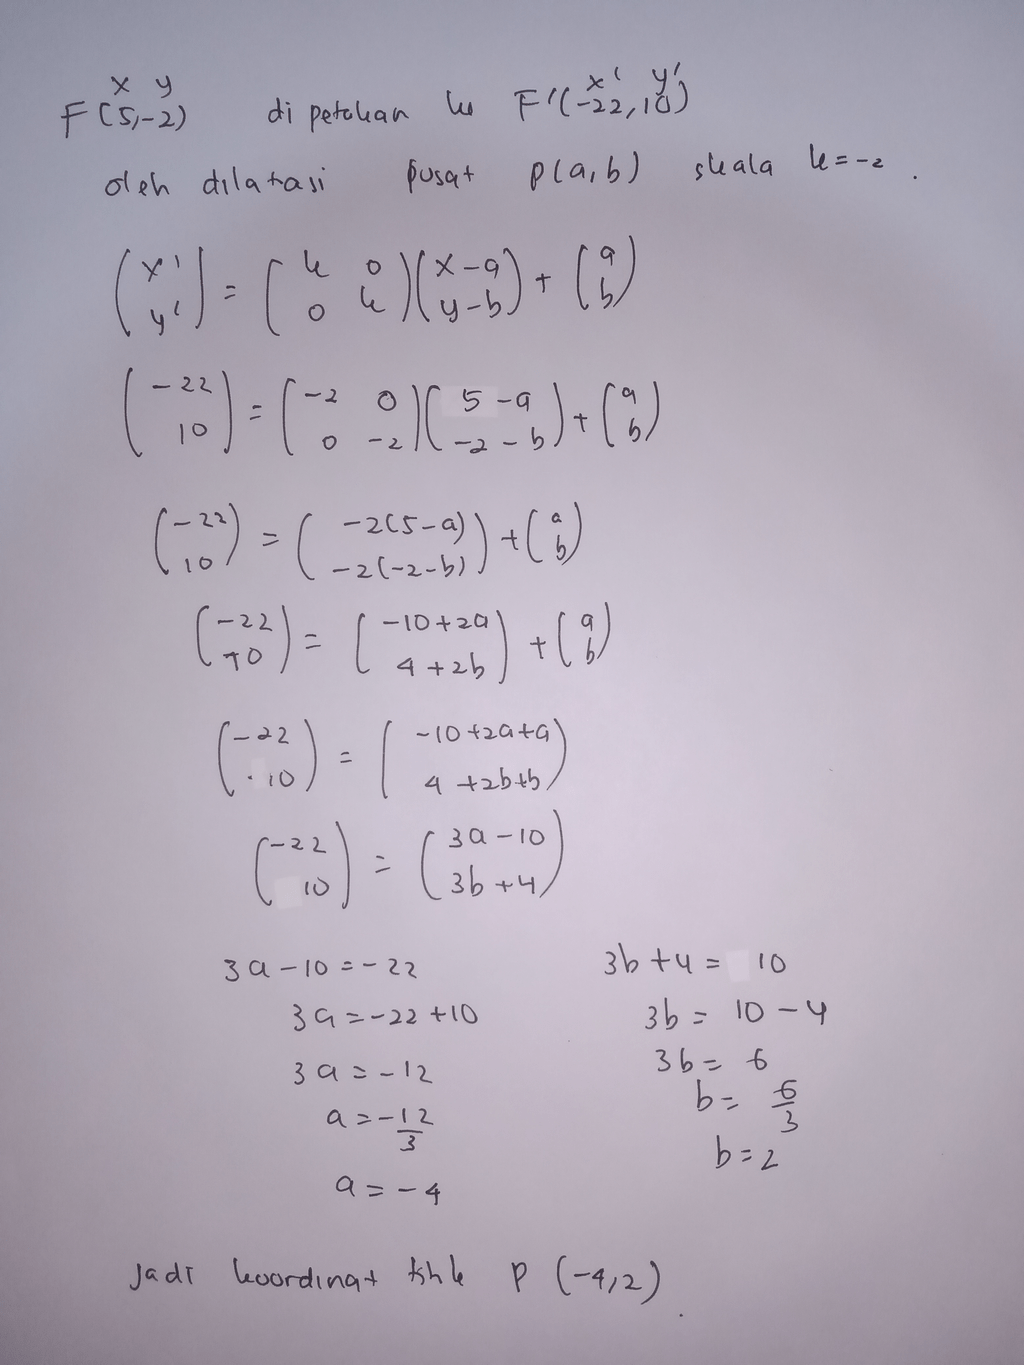 x y x' y'
F(5,-2) di petakan ke F'(-22,10)
oleh dilatasi pusat P(a,b) skala k=-2.
(x' y') = (k 0 0 k)(x-a y-b) + (a b)
(-22 10) = (-2 0 0 -2)(5-a -2-b) + (a b)
(-22 10) = (-2(5-a) -2(-2-b)) + (a b)
(-22 10) = (-10+2a 4+2b) + (a b)
(-22 10) = (-10+2a+a 4+2b+b)
(-22 10) = (3a-10 3b+4)
3a-10=-22 3b+4= 10
3a=-22+10 3b= 10-4
3a=-12 3b= 6
a=-12/3 b= 6/3
a=-4 b=2
Jadi koordinat ttk P (-4,2).